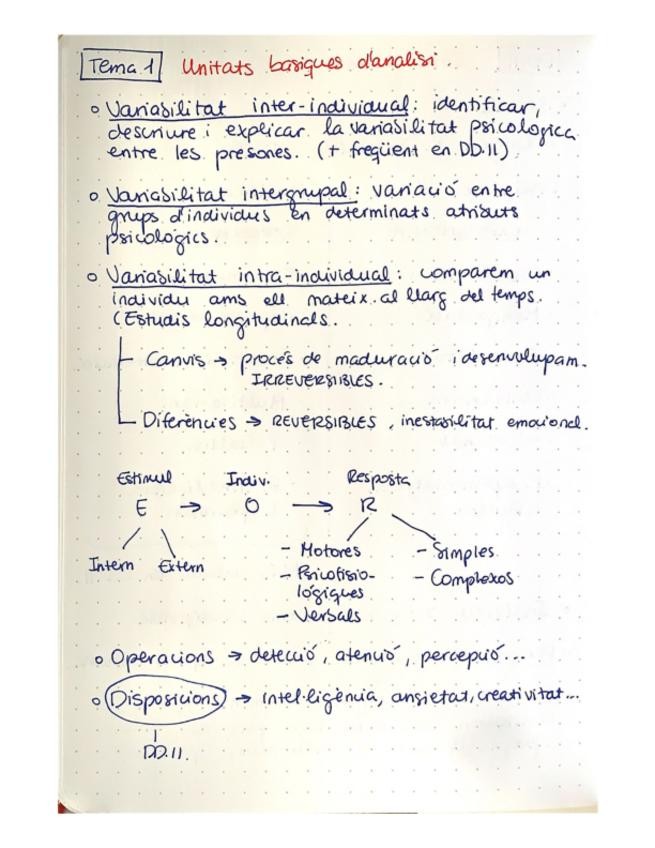 Tema 1 Unitats basiques d'analisi.
o Variabilitat inter-individual: identificar,
descriure i explicar la variabilitat psicologica
entre les presones. (+ freqüent en DD.II)
o Variabilitat intergrupal: variació entre
grups d'individus en determinats atributs
psicològics.
o Variabilitat intra-individual: comparem un
individu amb ell mateix al llarg del temps.
(Estudis longitudinals.
Canvis → procés de maduració i desenvolupam.
IRREVERSIBLES.
Diferències → REVERSIBLES, inestabilitat emocional.
Estimul Indiv. Resposta
E → O → R
Intern Extern
- Motores - Simples
- Psicofisio- - Complexos
lògiques
- Verbals
o Operacions → detecció, atenció, percepció...
o Disposicions → intel·ligència, ansietat, creativitat...
DD.II.